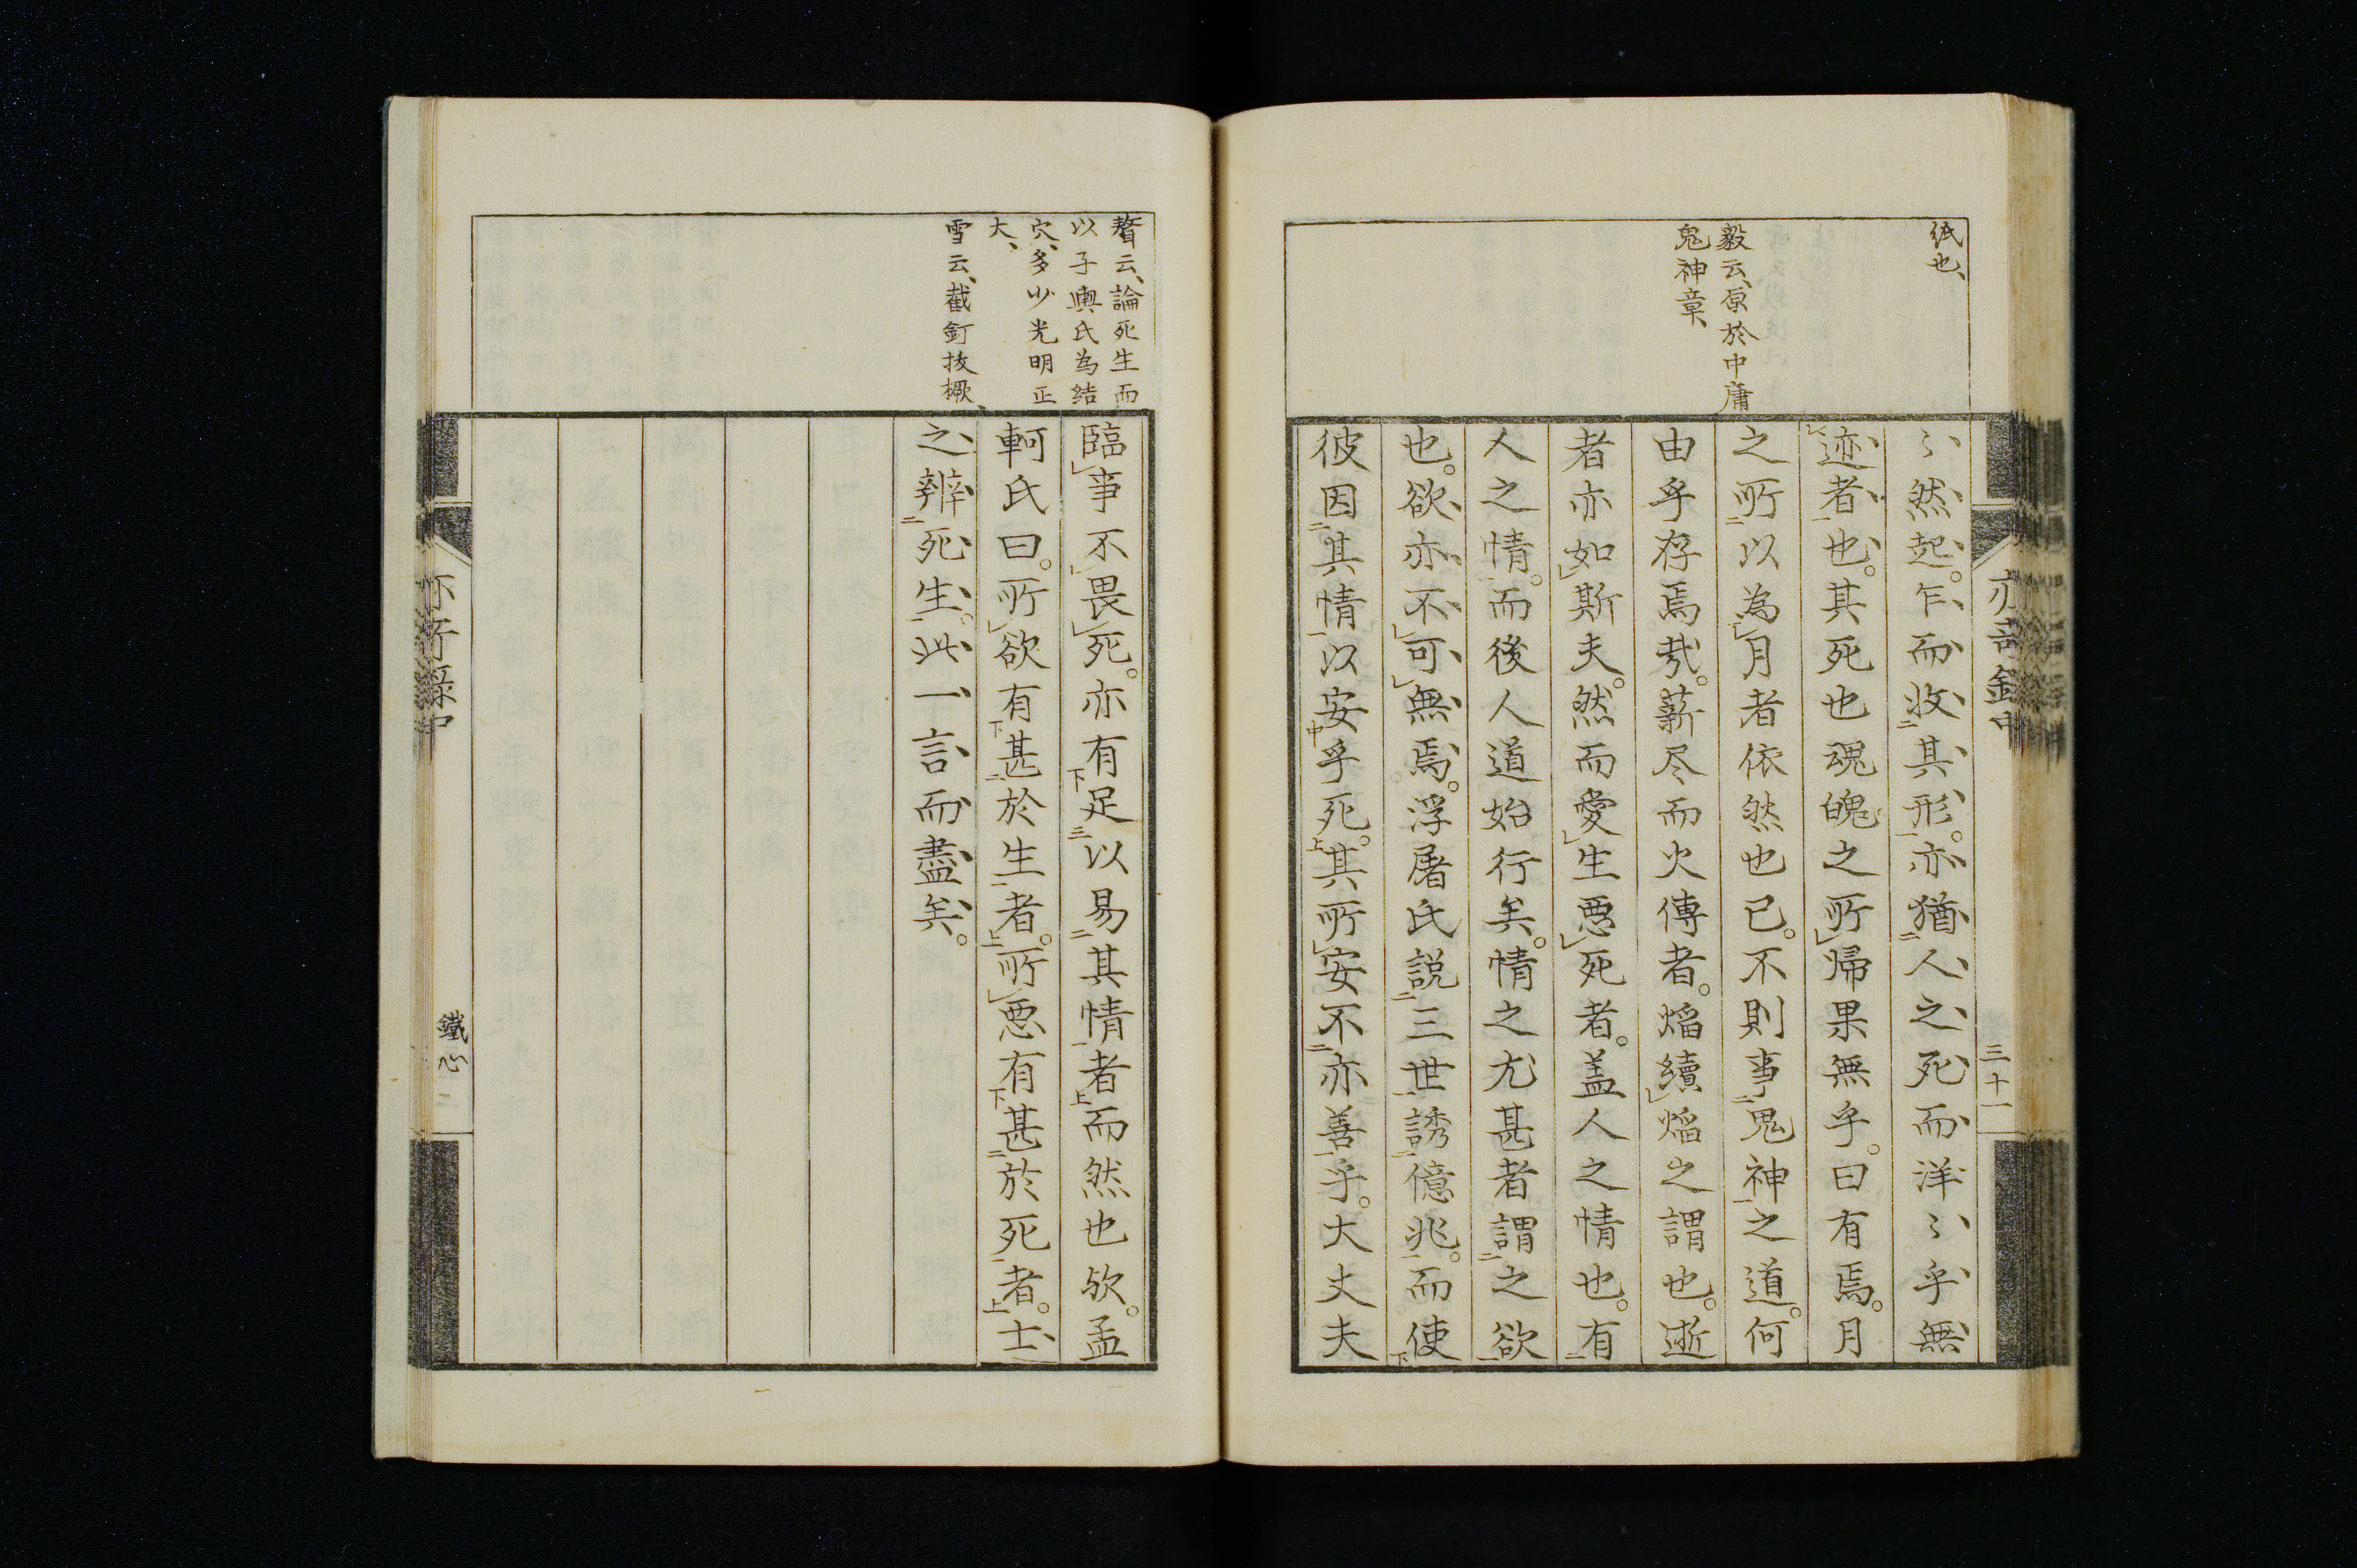 紙也、
毅云、原於中庸
鬼神章、
〻然起。乍而收其形。亦猶人之死而洋〻乎無
迹者也。其死也魂魄之所歸果無乎。曰有焉。月
之所以為月者依然也已。不則事鬼神之道。何
由乎存焉哉。薪尽而火傳者。焰續焰之謂也。逝
者亦如斯夫。然而愛生惡死者。盖人之情也。有
人之情。而後人道始行矣。情之尤甚者謂之欲
也。欲亦不可無焉。浮屠氏説三世誘億兆。而使
彼因其情以安乎死。其所安不亦善乎。大丈夫
三十一
瞀云、論死生而
以子輿氏為结
穴、多少光明正
大、
雪云、截釘拔橛、
臨事不畏死。亦有足以易其情者而然也欤。孟
軻氏曰。所欲有甚於生者。所惡有甚於死者。士
之辨死生。此一言而盡矣。
鐵心